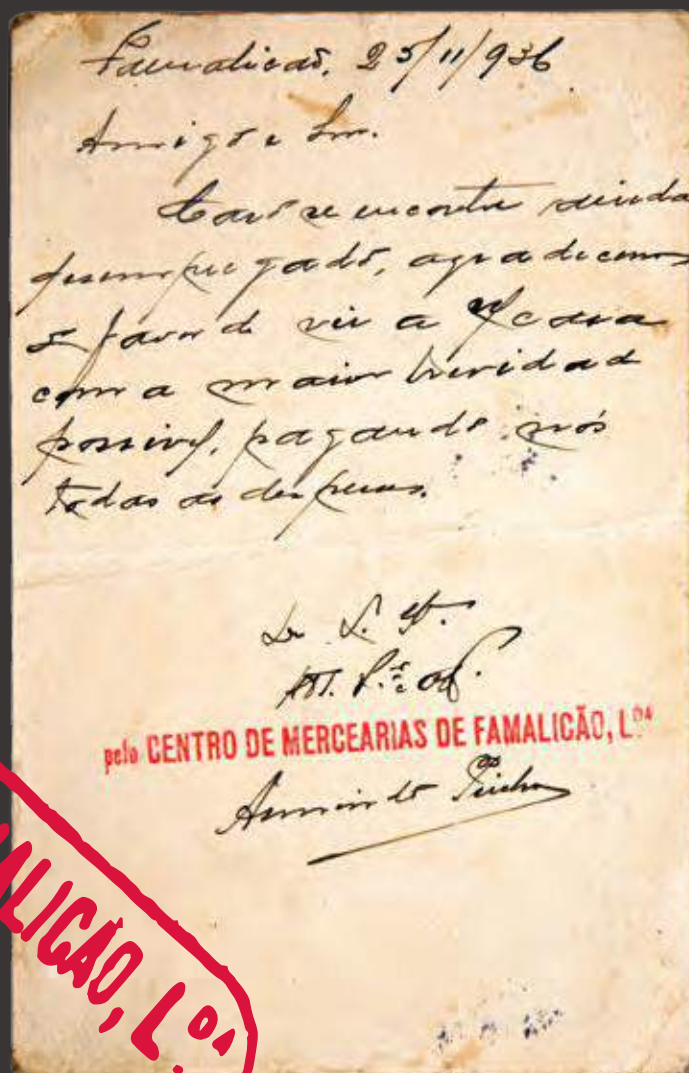 Famalicão, 25/11/936
Amigo e Snr.
Caso se encontre ainda
desempregado, agradecemos
o favor de vir a n/ casa
com a maior brevidade
possivel, pagando nós
todas as despesas.
De V. S.
At.
pelo CENTRO DE MERCEARIAS DE FAMALICÃO, L.DA
Armindo
ALICÃO, L.DA